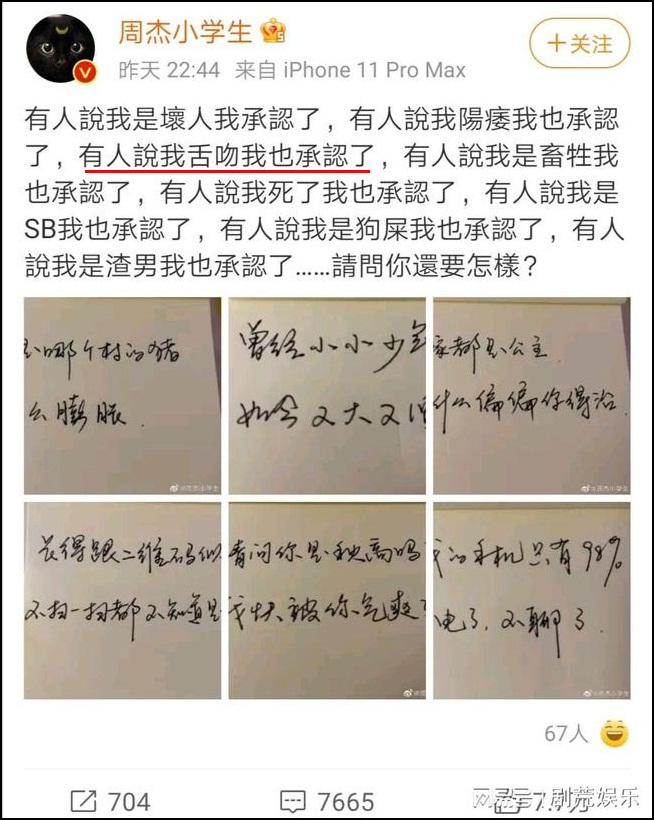 周杰小学生
+关注
昨天 22:44 来自 iPhone 11 Pro Max
有人說我是壞人我承認了，有人說我陽痿我也承認
了，有人說我舌吻我也承認了，有人說我是畜牲我
也承認了，有人說我死了我也承認了，有人說我是
SB我也承認了，有人說我是狗屎我也承認了，有人
說我是渣男我也承認了……請問你還要怎樣？
是哪个村的猪
么膨胀.
曾经小小少年
如今又大又
家都是公主.
什么偏偏你得治.
长得跟二维码似
不扫一扫都不知道是
请问你是秋高吗
我快被你气爽了
我的手机只有98%
电了.不聊了.
@周杰小学生
@周杰小学生
@周杰小学生
@周杰小学生
67人
704
7665
7.7万
网易号/剧荒娱乐